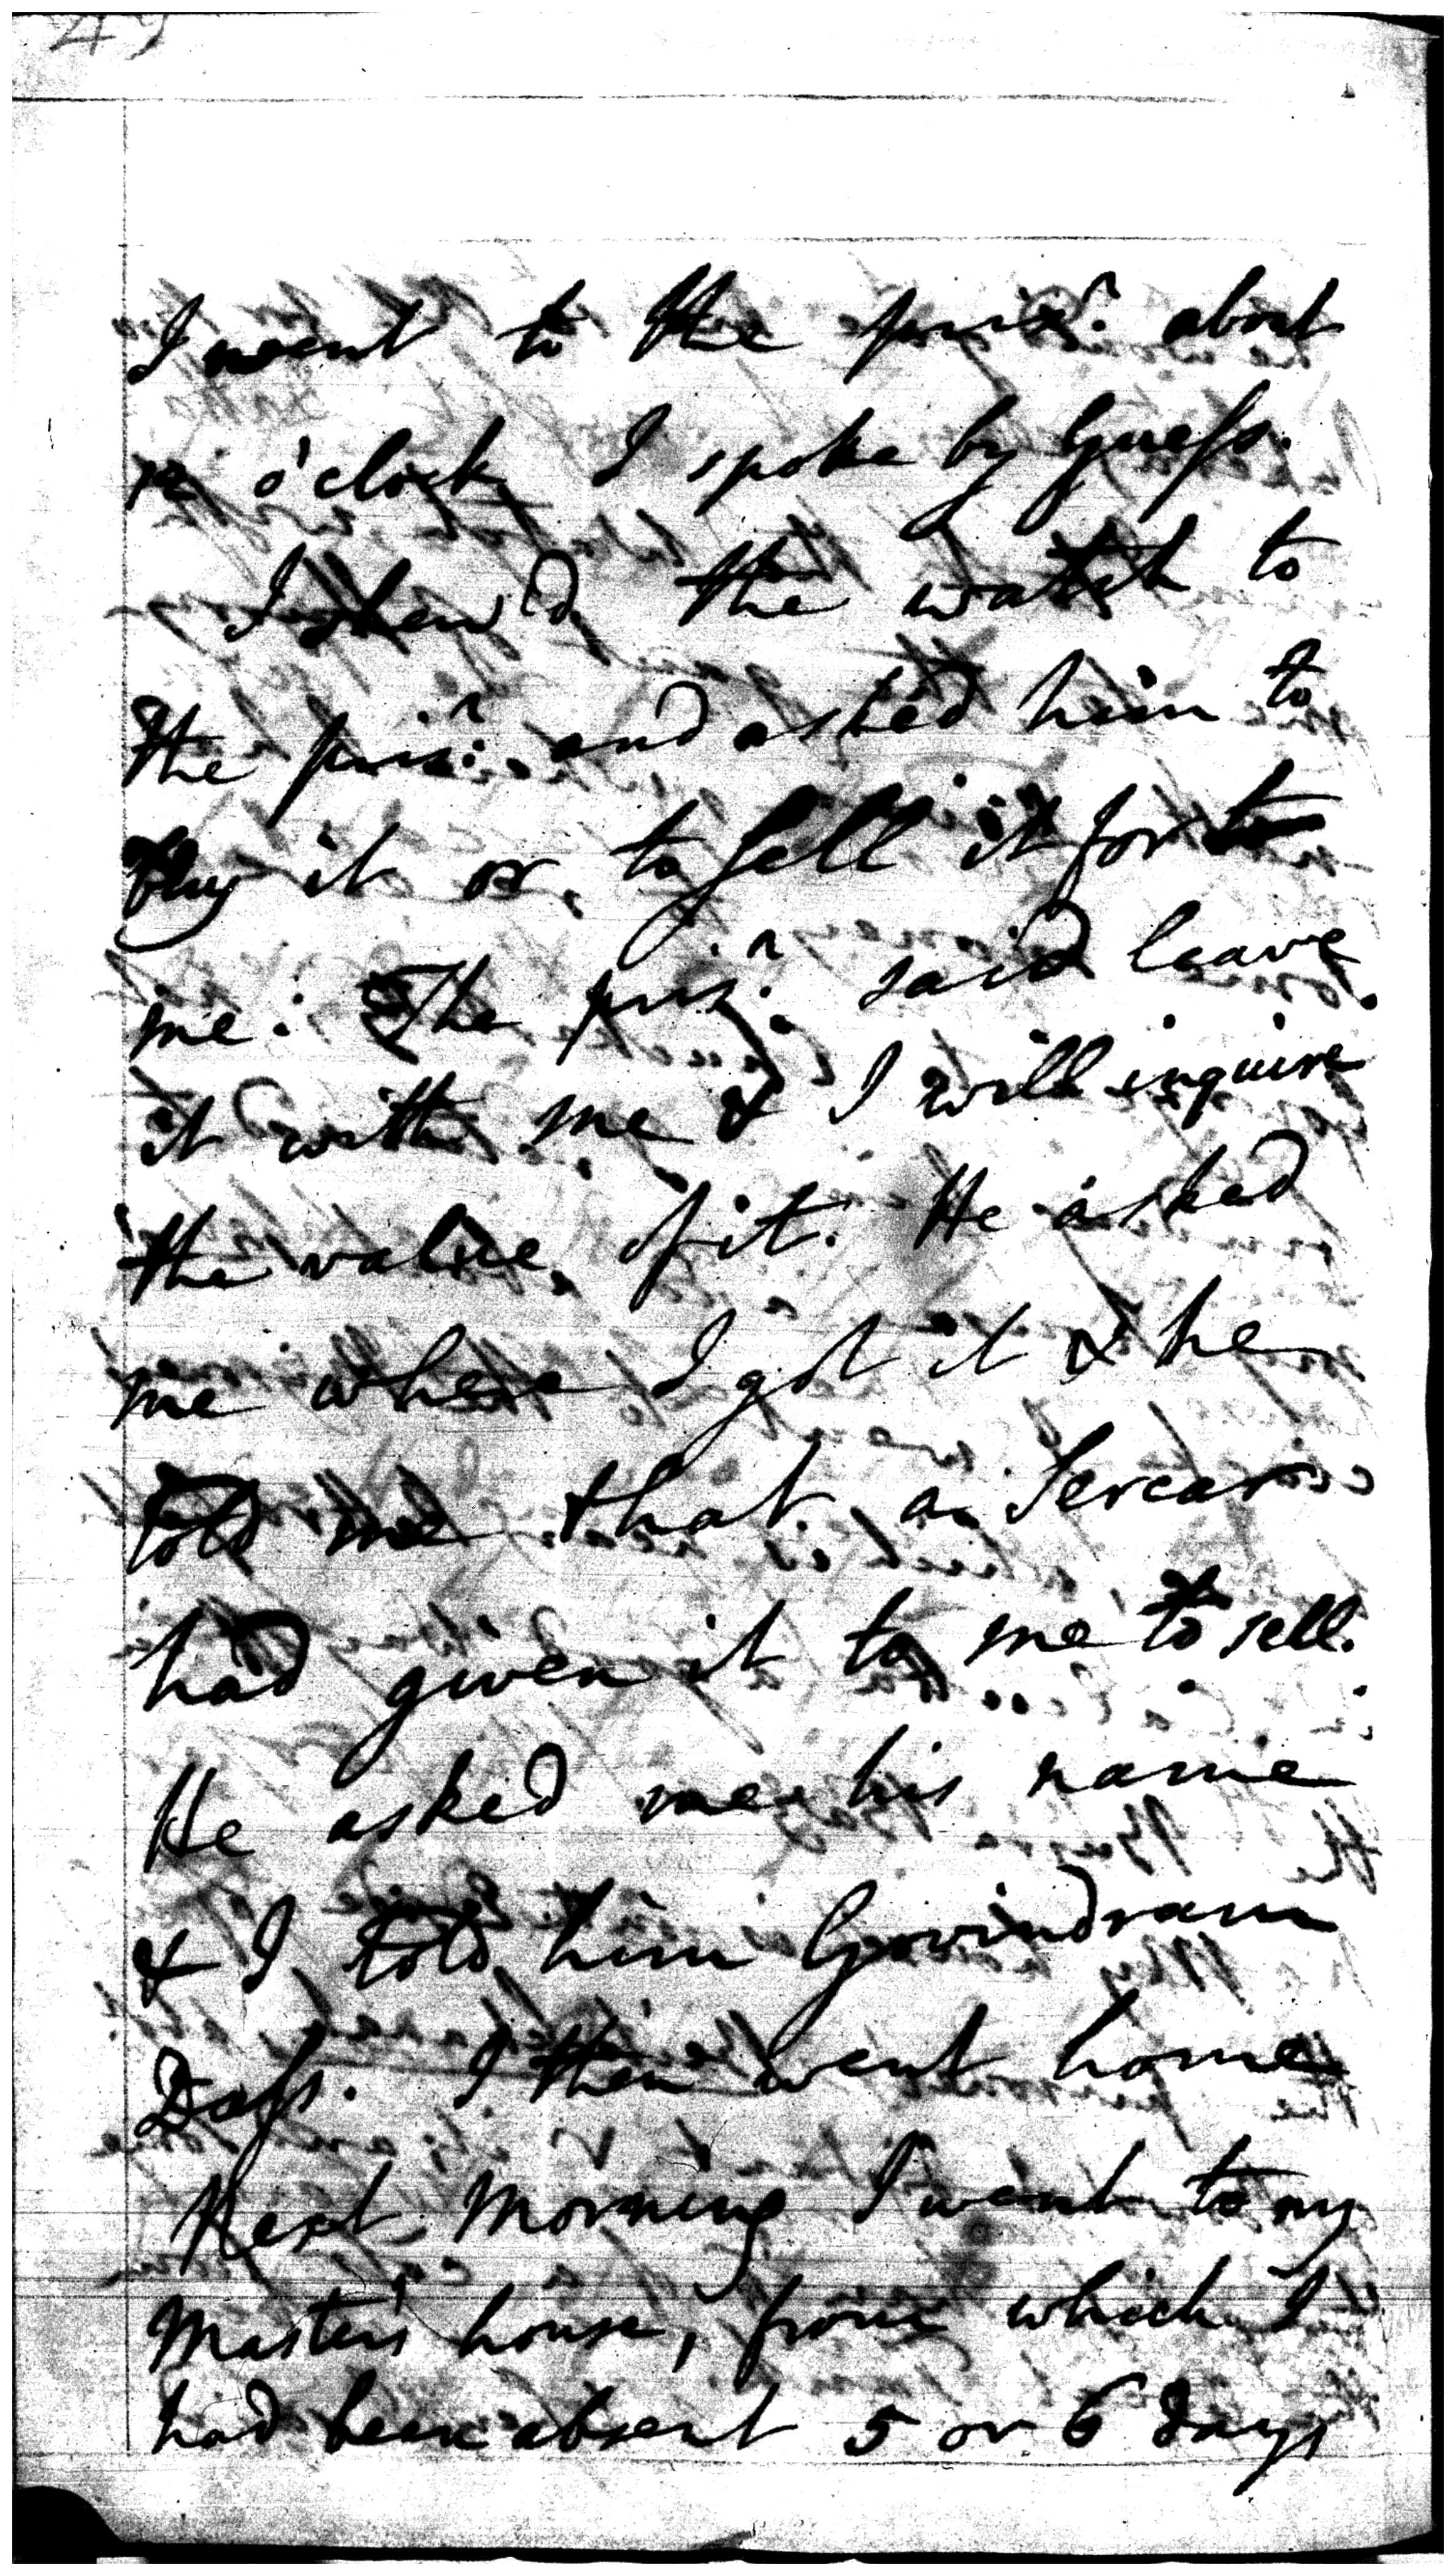 49
I went to the pris.r about
12 o'clock I spoke by Guess.
I shew'd the watch to
the pris.r and asked him to
Buy it or to sell it for to
me: The pris.r said leave
it with me & I will inquire
the value of it. He asked
me where I got it & he
told me that a Sercar
had given it to me to sell.
He asked me his name
& I told him Govindram
Dass. I then went home
Next Morning I went to my
Master's house, from which I
had been absent 5 or 6 days